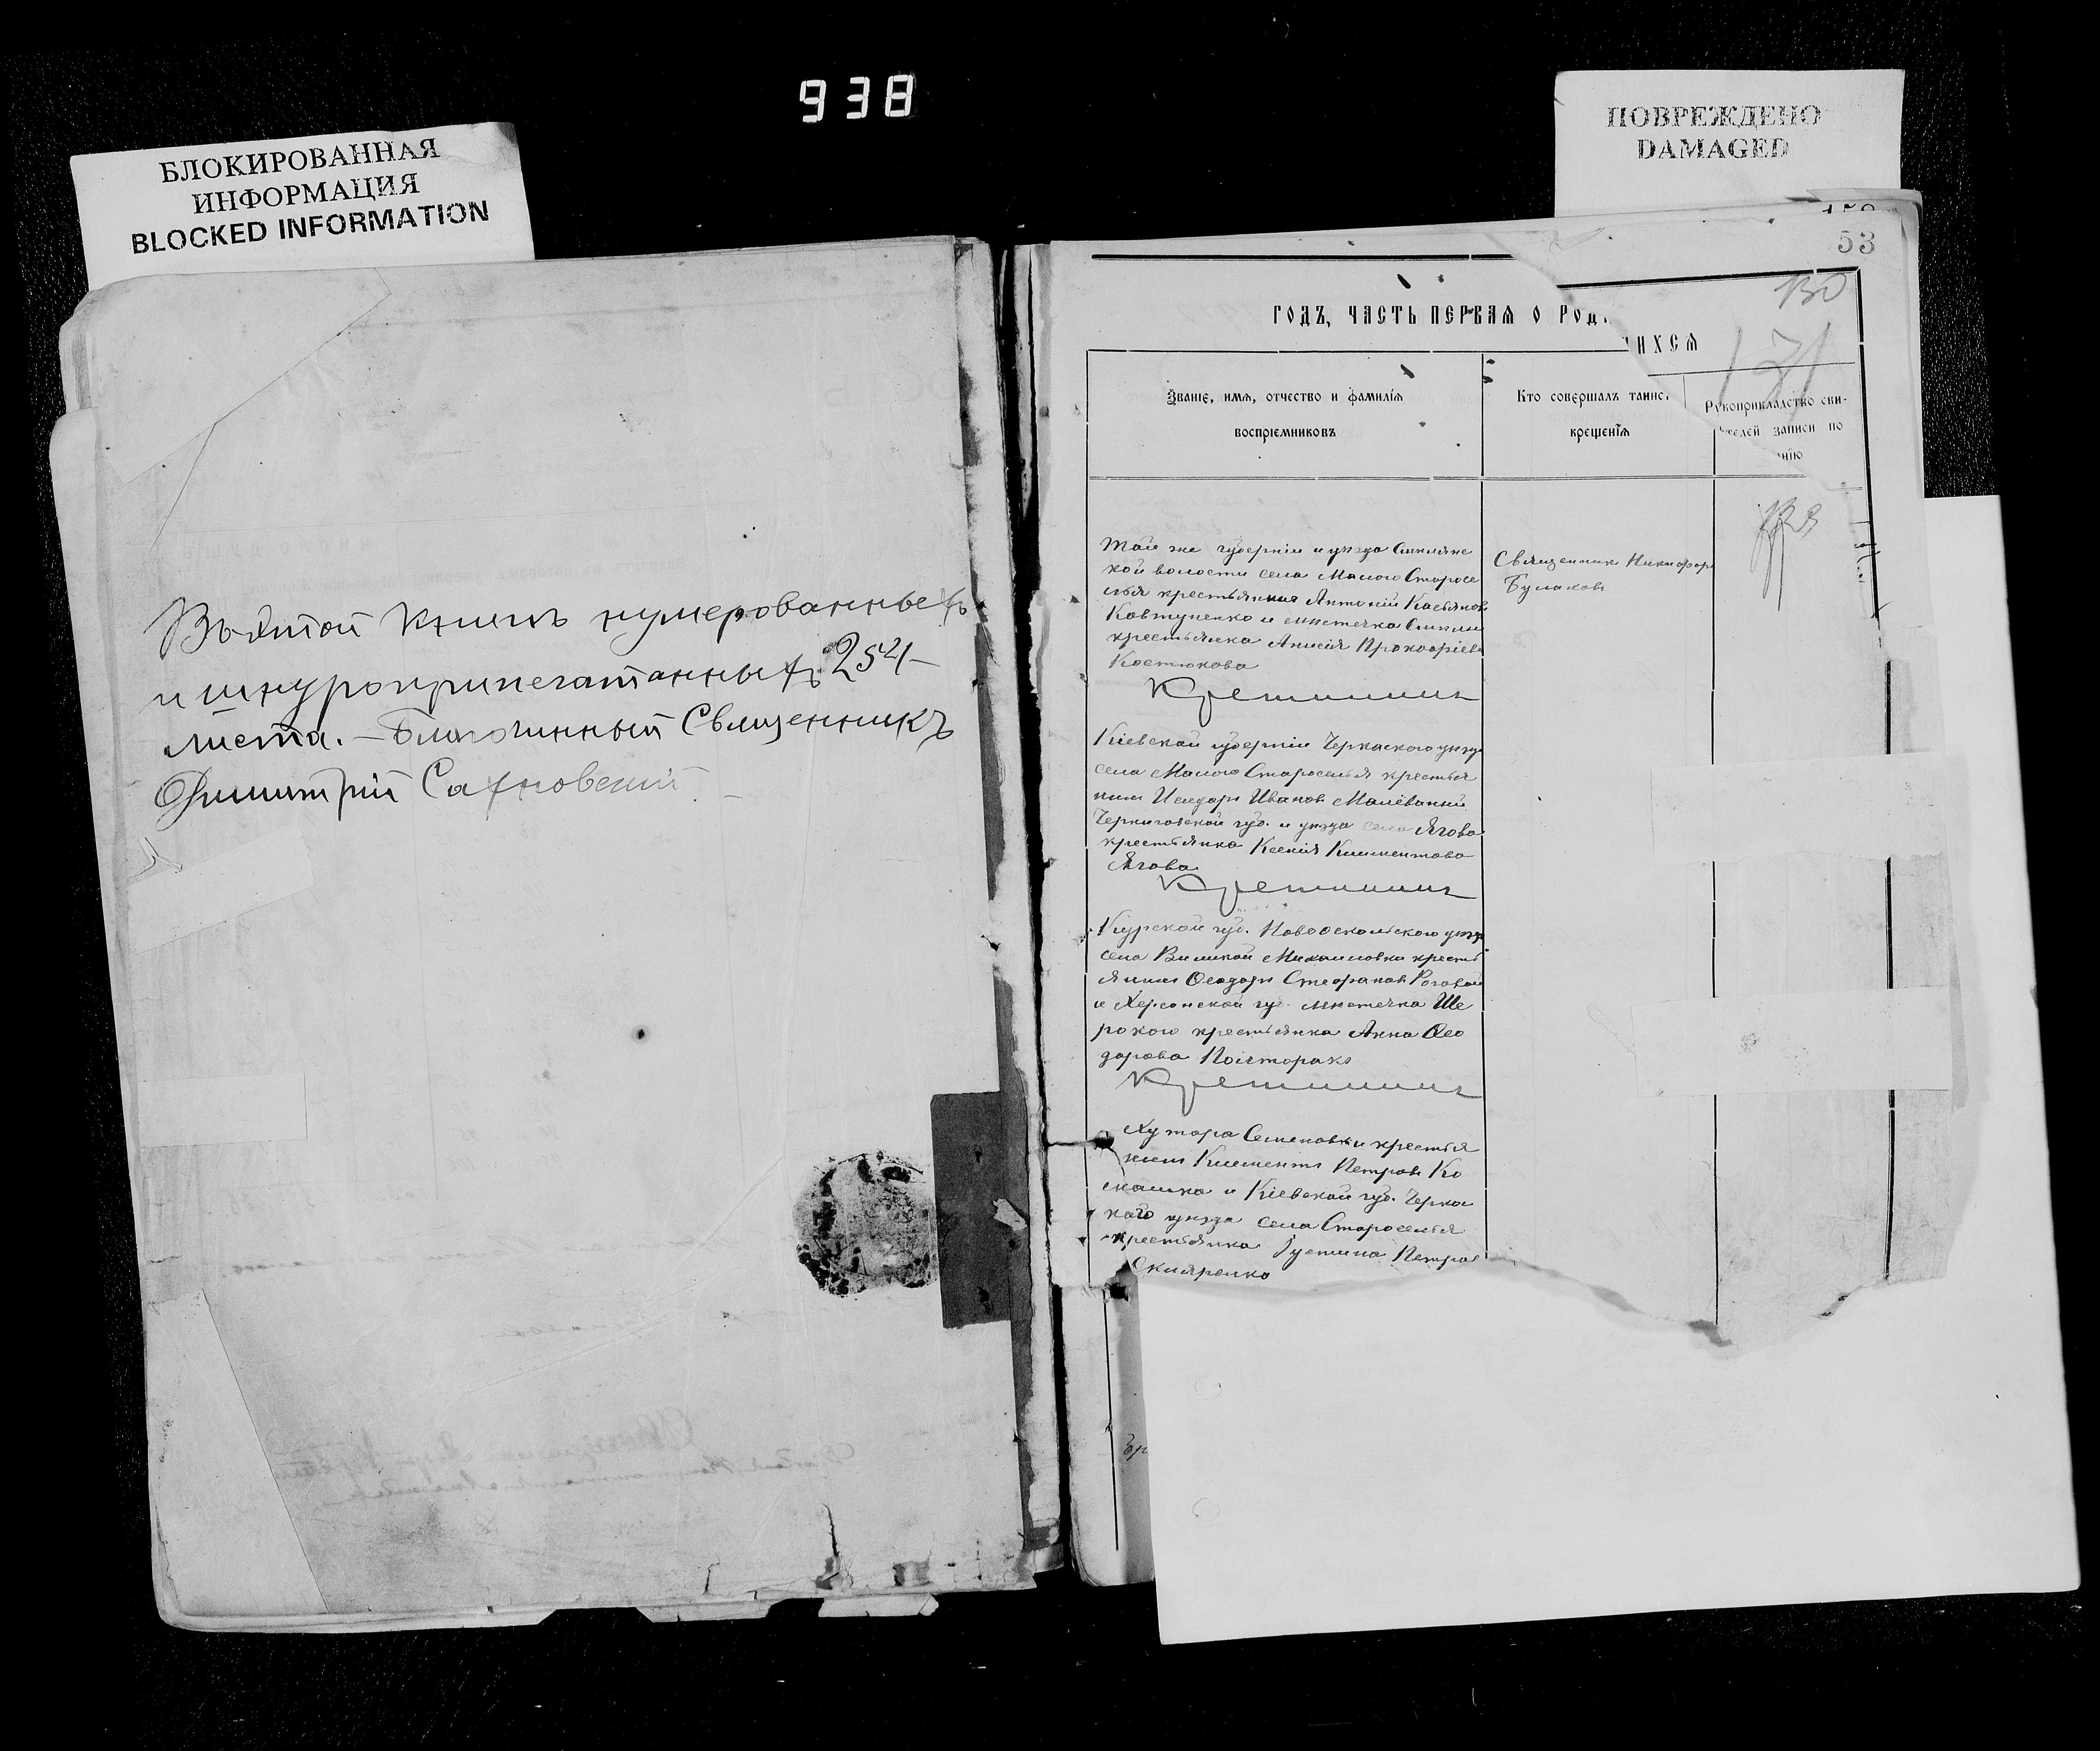 938
БЛОКИРОВАННАЯ
ИНФОРМАЦИЯ
BLOCKED INFORMATION
ПОВРЕЖДЕНО
DAMAGED
Въ этой книгѣ нумерованныхъ
и шнуроприпечатанныхъ 254
листа. – Благочинный Священникъ
Димитрій Сахновскій
53
130
131
ГОДЪ, ЧАСТЬ ПЕРВАЯ О РОД
ИХСЯ
Званіе, имя, отчество и фамилія
воспріемниковъ
Кто совершалъ таинс
крещенія
Рукоприкладство сви-
телей записи по
нію
Той же губерніи и уѣзда Смилянс
кой волости села Малого Старосе
лья крестьянинъ Антоній Касьяновъ
Ковтуненко и мѣстечка Смилы
крестьянка Анисія Прокофіева
Костюкова
Священникъ Никифоръ
Булаховъ
Крещенія
Кіевской губерніи Черкаского уѣзда
села Малого Староселья крестья
нинъ Исидоръ Ивановъ Малёваный
Черниговской губ. и уѣзда села Ягова
крестьянка Ксенія Климентова
Ягова
Курской губ. Новооскольского уѣзда
села Великой Михаиловки кресть
янинъ Ѳеодоръ Стефановъ Роговой
и Херсонской гу. мѣстечка Ше
рокого крестьянка Анна Ѳео
дорова Полторакъ
Хутора Семеновки крестья
нинъ Климентъ Петровъ Ко
и Кіевской губ. Черка
каго уѣзда села Староселья
крестьянка Іустина Петров
Скляренко